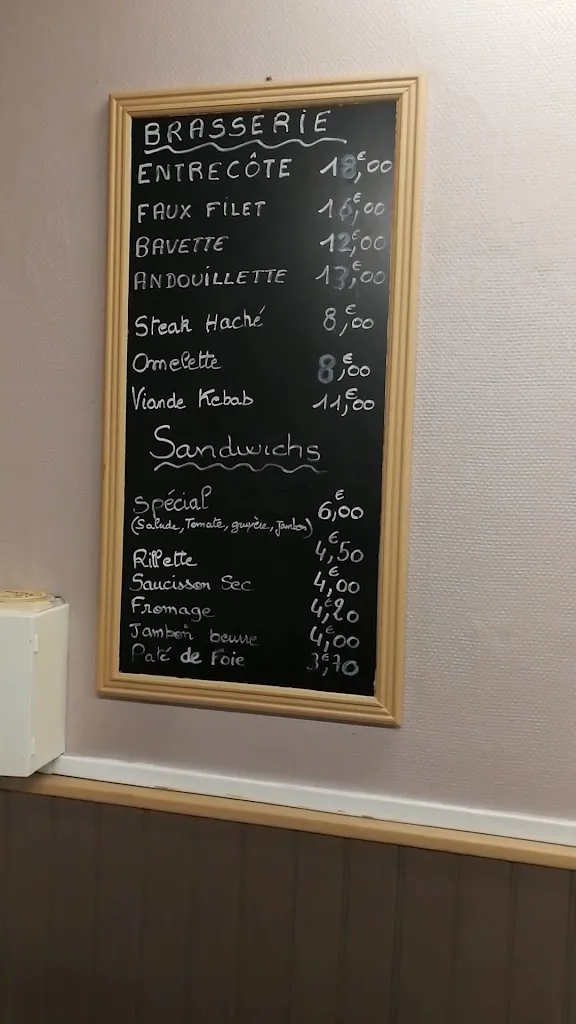 BRASSERIE
ENTRECÔTE 18,€00
FAUX FILET 16,€00
BAVETTE 12,€00
ANDOUILLETTE 13,€00
Steak Haché 8,€00
Omelette 8,€00
Viande Kebab 11,€00
Sandwichs
Spécial 6,€00
(Salade, Tomate, gruyère, Jambon)
Rillette 4,€50
Saucisson Sec 4,€00
Fromage 4,€20
Jambon beurre 4,€00
Paté de Foie 3,€70